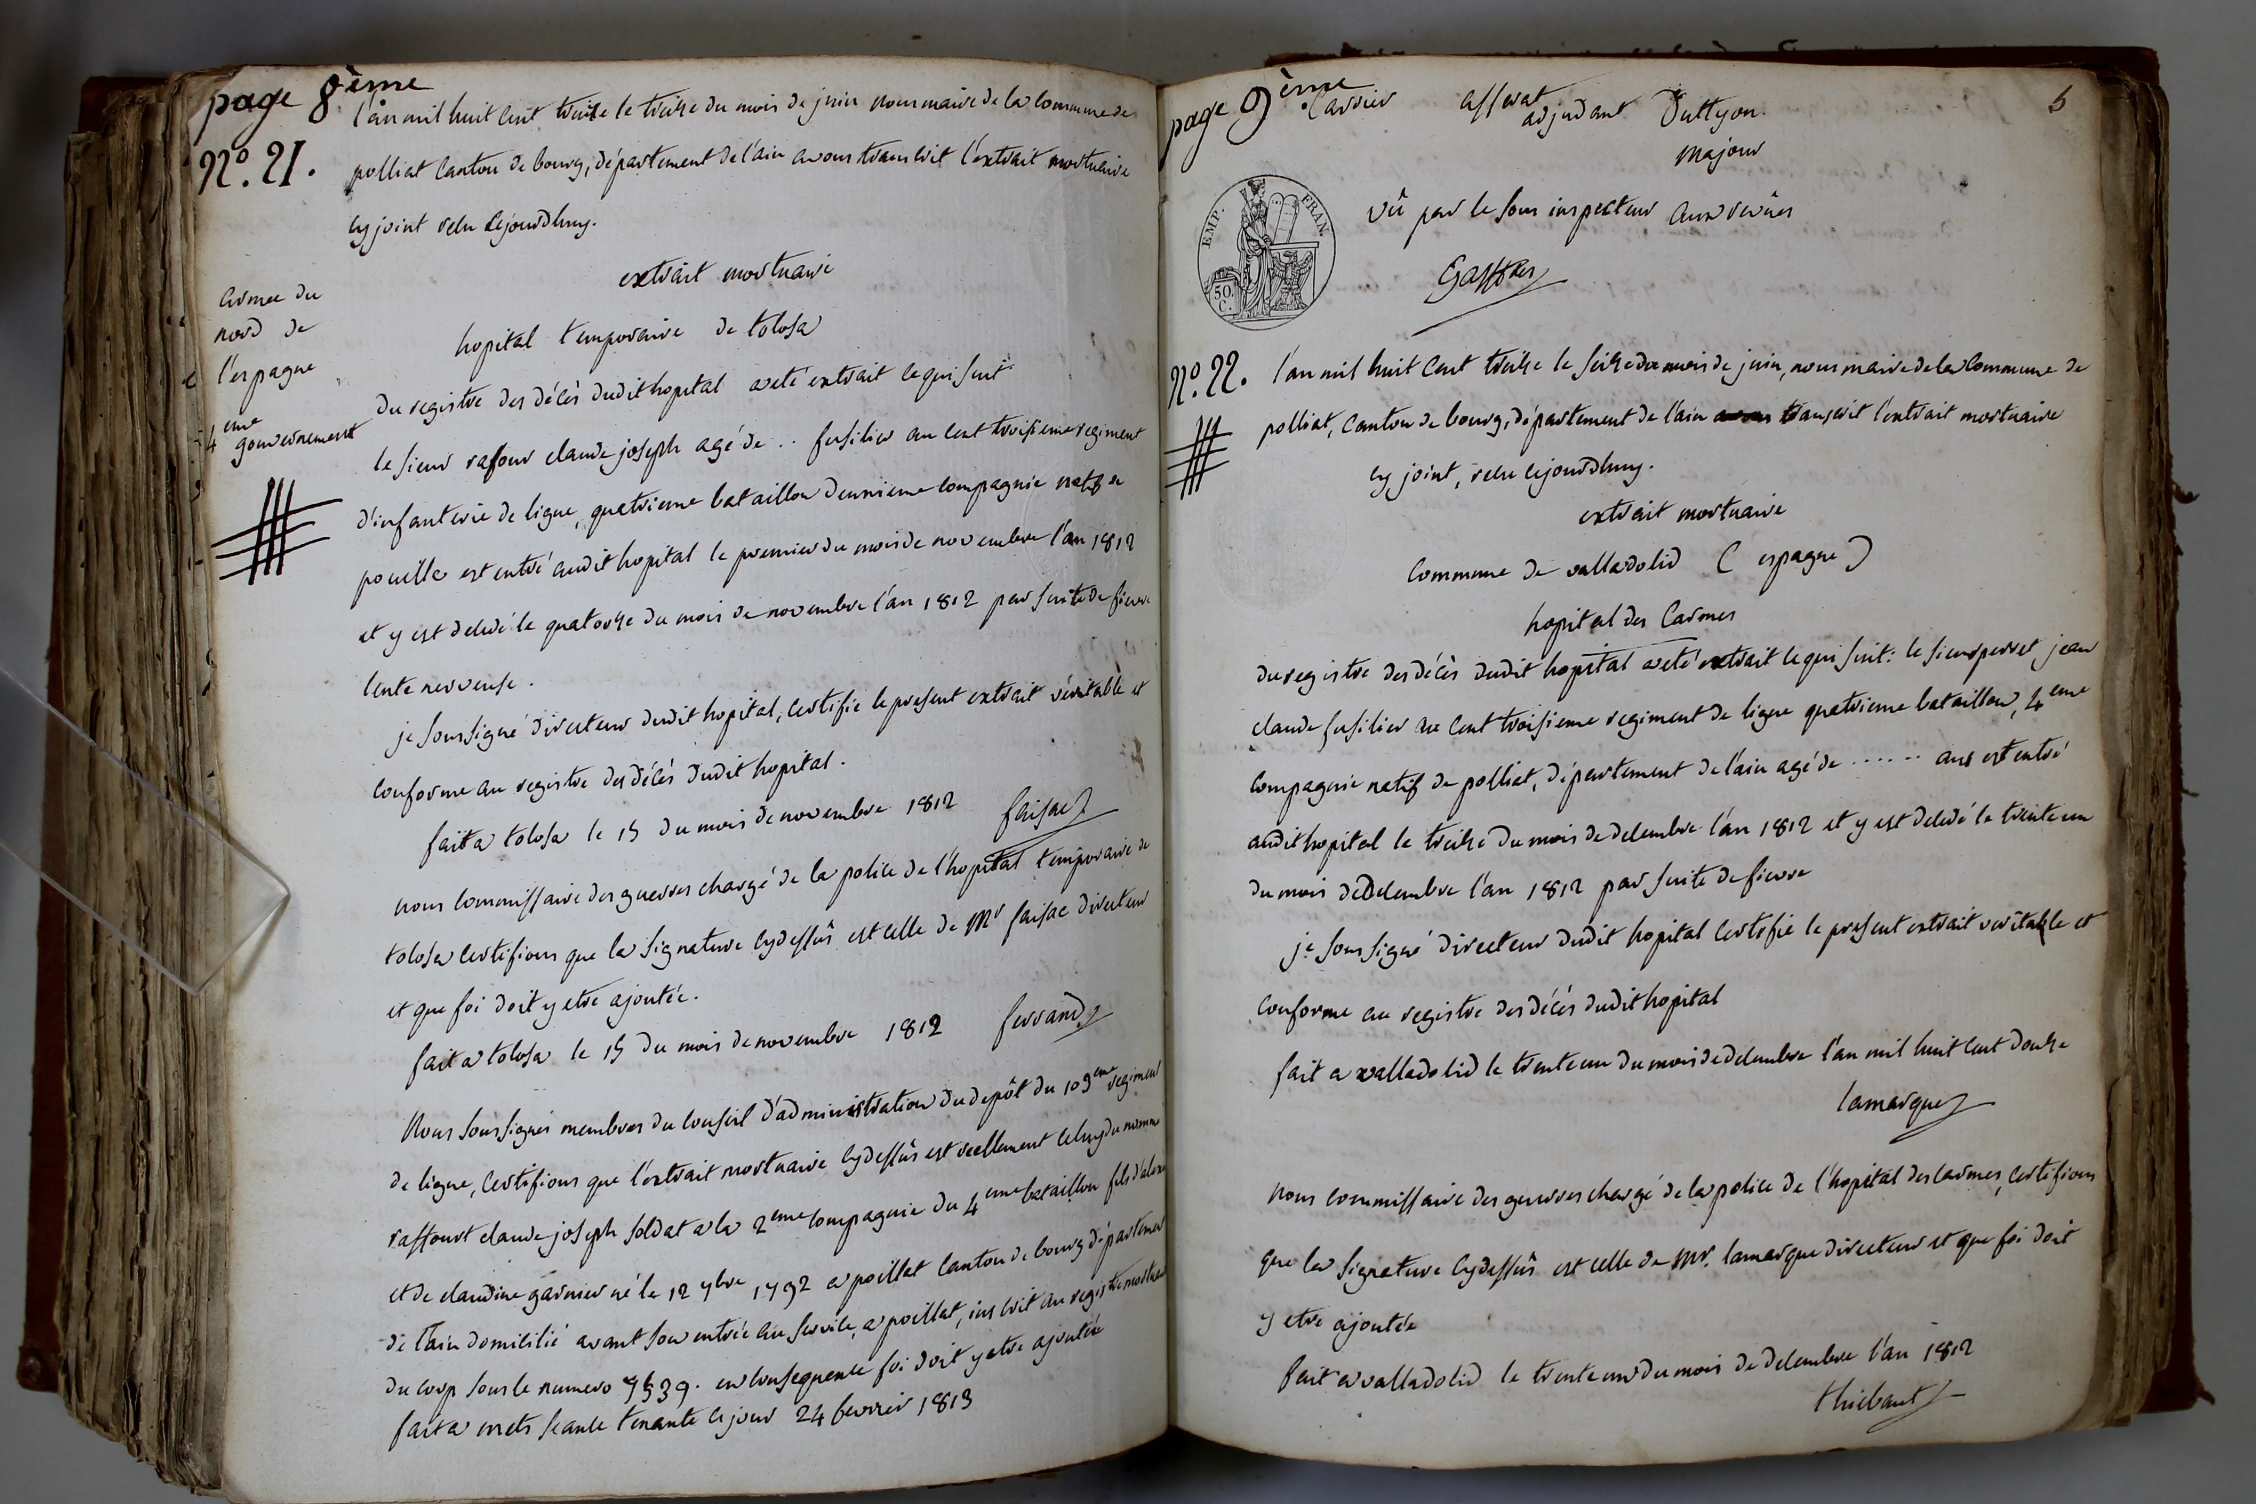 page 8ème
l'an mil huit cent treize le treize du mois de juin nous maire de la commune de
N°. 21.
polliat canton de bourg, département de l'ain avons transcrit l'extrait mortuaire
cy joint relu cejourdhuy.
extrait mortuaire
armee du
nord de
l'espagne
4 eme
gouvernement
hopital temporaire de tolosa
du registre des décès dudit hopital a eté extrait ce qui suit
le sieur rafour claude joseph agé de .. fusilier au cent troisieme regiment
d'infanterie de ligne, quatrieme bataillon deuxieme compagnie natif de
pouille est entré audit hopital le premier du mois de novembre l'an 1812
et y est decedé le quatorze du mois de novembre l'an 1812 par suite de fievre
lente nerveuse.
je soussigné directeur dudit hopital, certifie le present extrait véritable et
conforme au registre des décès dudit hopital.
fait a tolosa le 15 du mois de novembre 1812 faisac
nous commissaire des guerres chargé de la police de l'hopital temporaire de
tolosa certifions que la signature cydessûs est celle de Mr faisac directeur
et que foi doit y etre ajoutée.
fait a tolosa le 15 du mois de novembre 1812 ferrand
Nous soussignés membres du conseil d'administration du depôt du 103eme regiment
de ligne, certifions que l'extrait mortuaire cydessûs est reellement celuy du nommé
raffourt claude joseph soldat a la 2eme compagnie du 4eme bataillon fils d'
et de claudine garnier né le 12 9bre 1792 a poillat canton de bourg département
de l'ain domicilié avant son entrée au service, a poillat, inscrit au registre
du corp sous le numero 7539. en consequence foi doit y etre ajoutée
fait a mets seante tenante ce jour 24 fevrier 1813
page 9ème
Carrier afferat Duttyon. 5
adjudant
Major
vû par le sous inspecteur aux revûes
EMP. FRAN.
50.
C.
N°. 22.
l'an mil huit cent treize le seize du mois de juin, nous maire de la commune de
polliat, canton de bourg, département de l'ain transcrit l'extrait mortuaire
cy joint, relu cejourdhuy.
extrait mortuaire
commune de valladolid ( espagne )
hopital des Carmes
du registre des décès dudit hopital a eté extrait ce qui suit: le sieur perret jean
claude fusilier au cent troisieme regiment de ligne quatrieme bataillon, 4eme
compagnie natif de polliat, département de l'ain agé de ...... ans est entré
audit hopital le treize du mois de decembre l'an 1812 et y est decedé le trente un
du mois de decembre l'an 1812 par suite de fievre
je soussigné directeur dudit hopital certifie le present extrait veritable et
conforme au registre des décès dudit hopital
fait a valladolid le trente un du mois de decembre l'an mil huit cent douze
lamarque
nous commissaire des guerres chargé de la police de l'hopital des carmes, certifions
que la signature cydessûs est celle de Mr. lamarque directeur et que foi doit
y etre ajoutée
fait a valladolid le trente un du mois de decembre l'an 1812
thiebaut